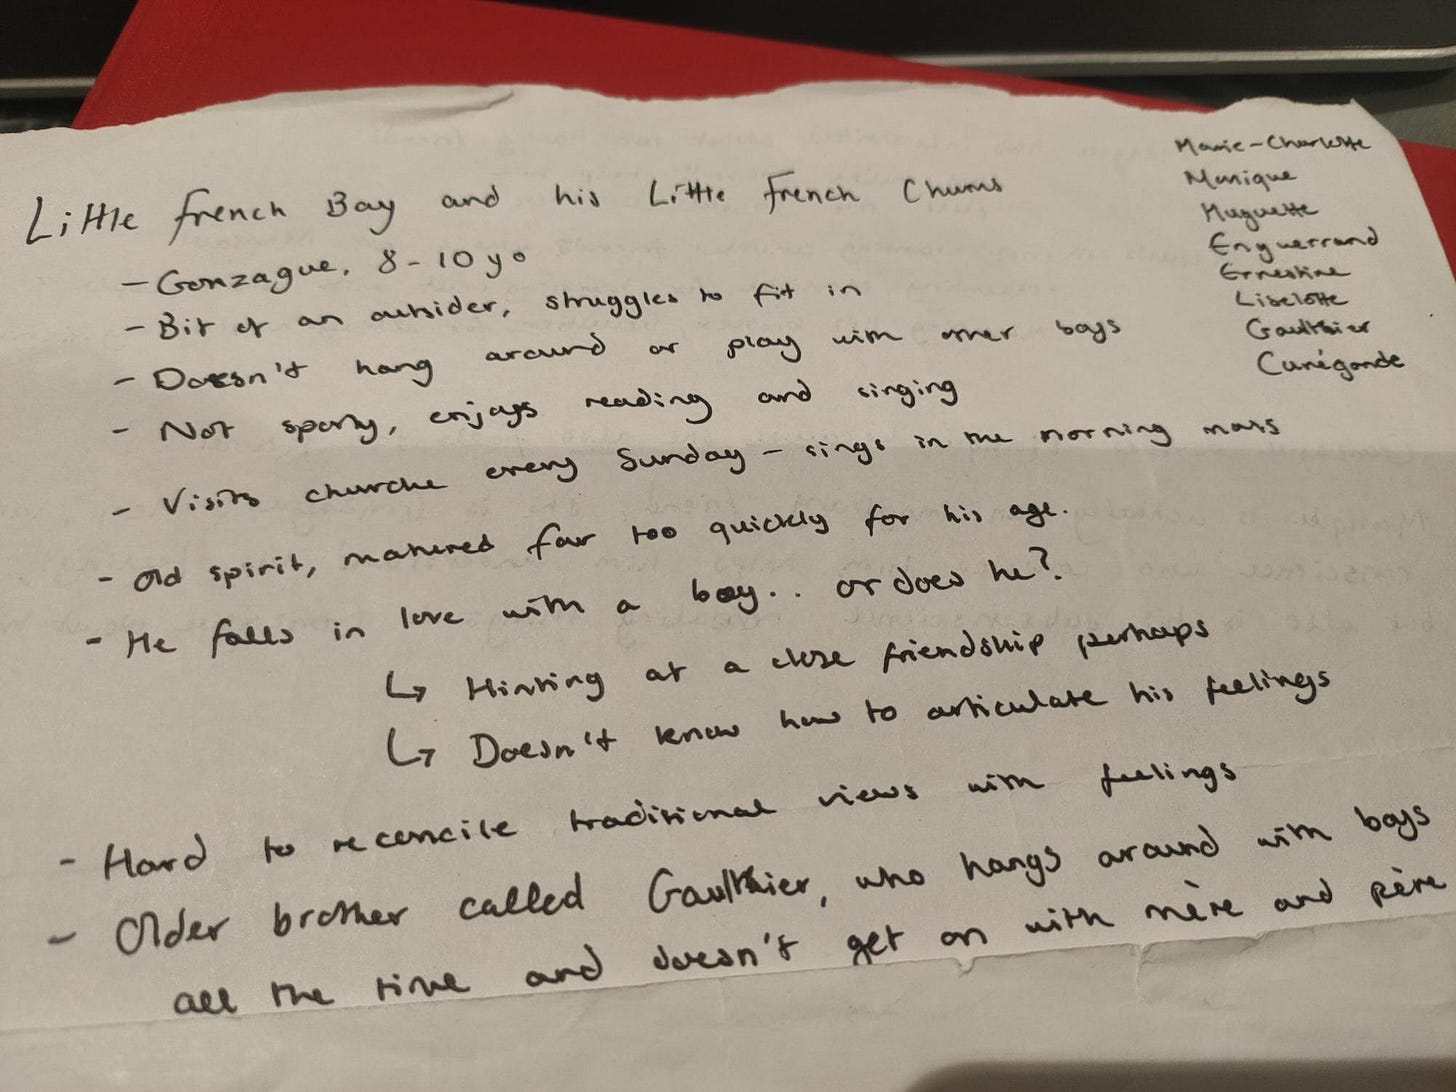 Little French Boy and his Little French Chums
- Gonzague, 8-10 yo
- Bit of an outsider, struggles to fit in
- Doesn't hang around or play with other boys
- Not sporty, enjoys reading and singing
- Visits churche every Sunday - sings in the morning mass
- Old spirit, matured far too quickly for his age.
- He falls in love with a boy.. or does he?
↳ Hinting at a close friendship perhaps
↳ Doesn't know how to articulate his feelings
- Hard to reconcile traditional views with feelings
- Older brother called Gaulthier, who hangs around with boys
all the time and doesn't get on with mère and père
Marie-Charlotte
Monique
Huguette
Enguerrand
Ernestine
Liselotte
Gaulthier
Cunégonde